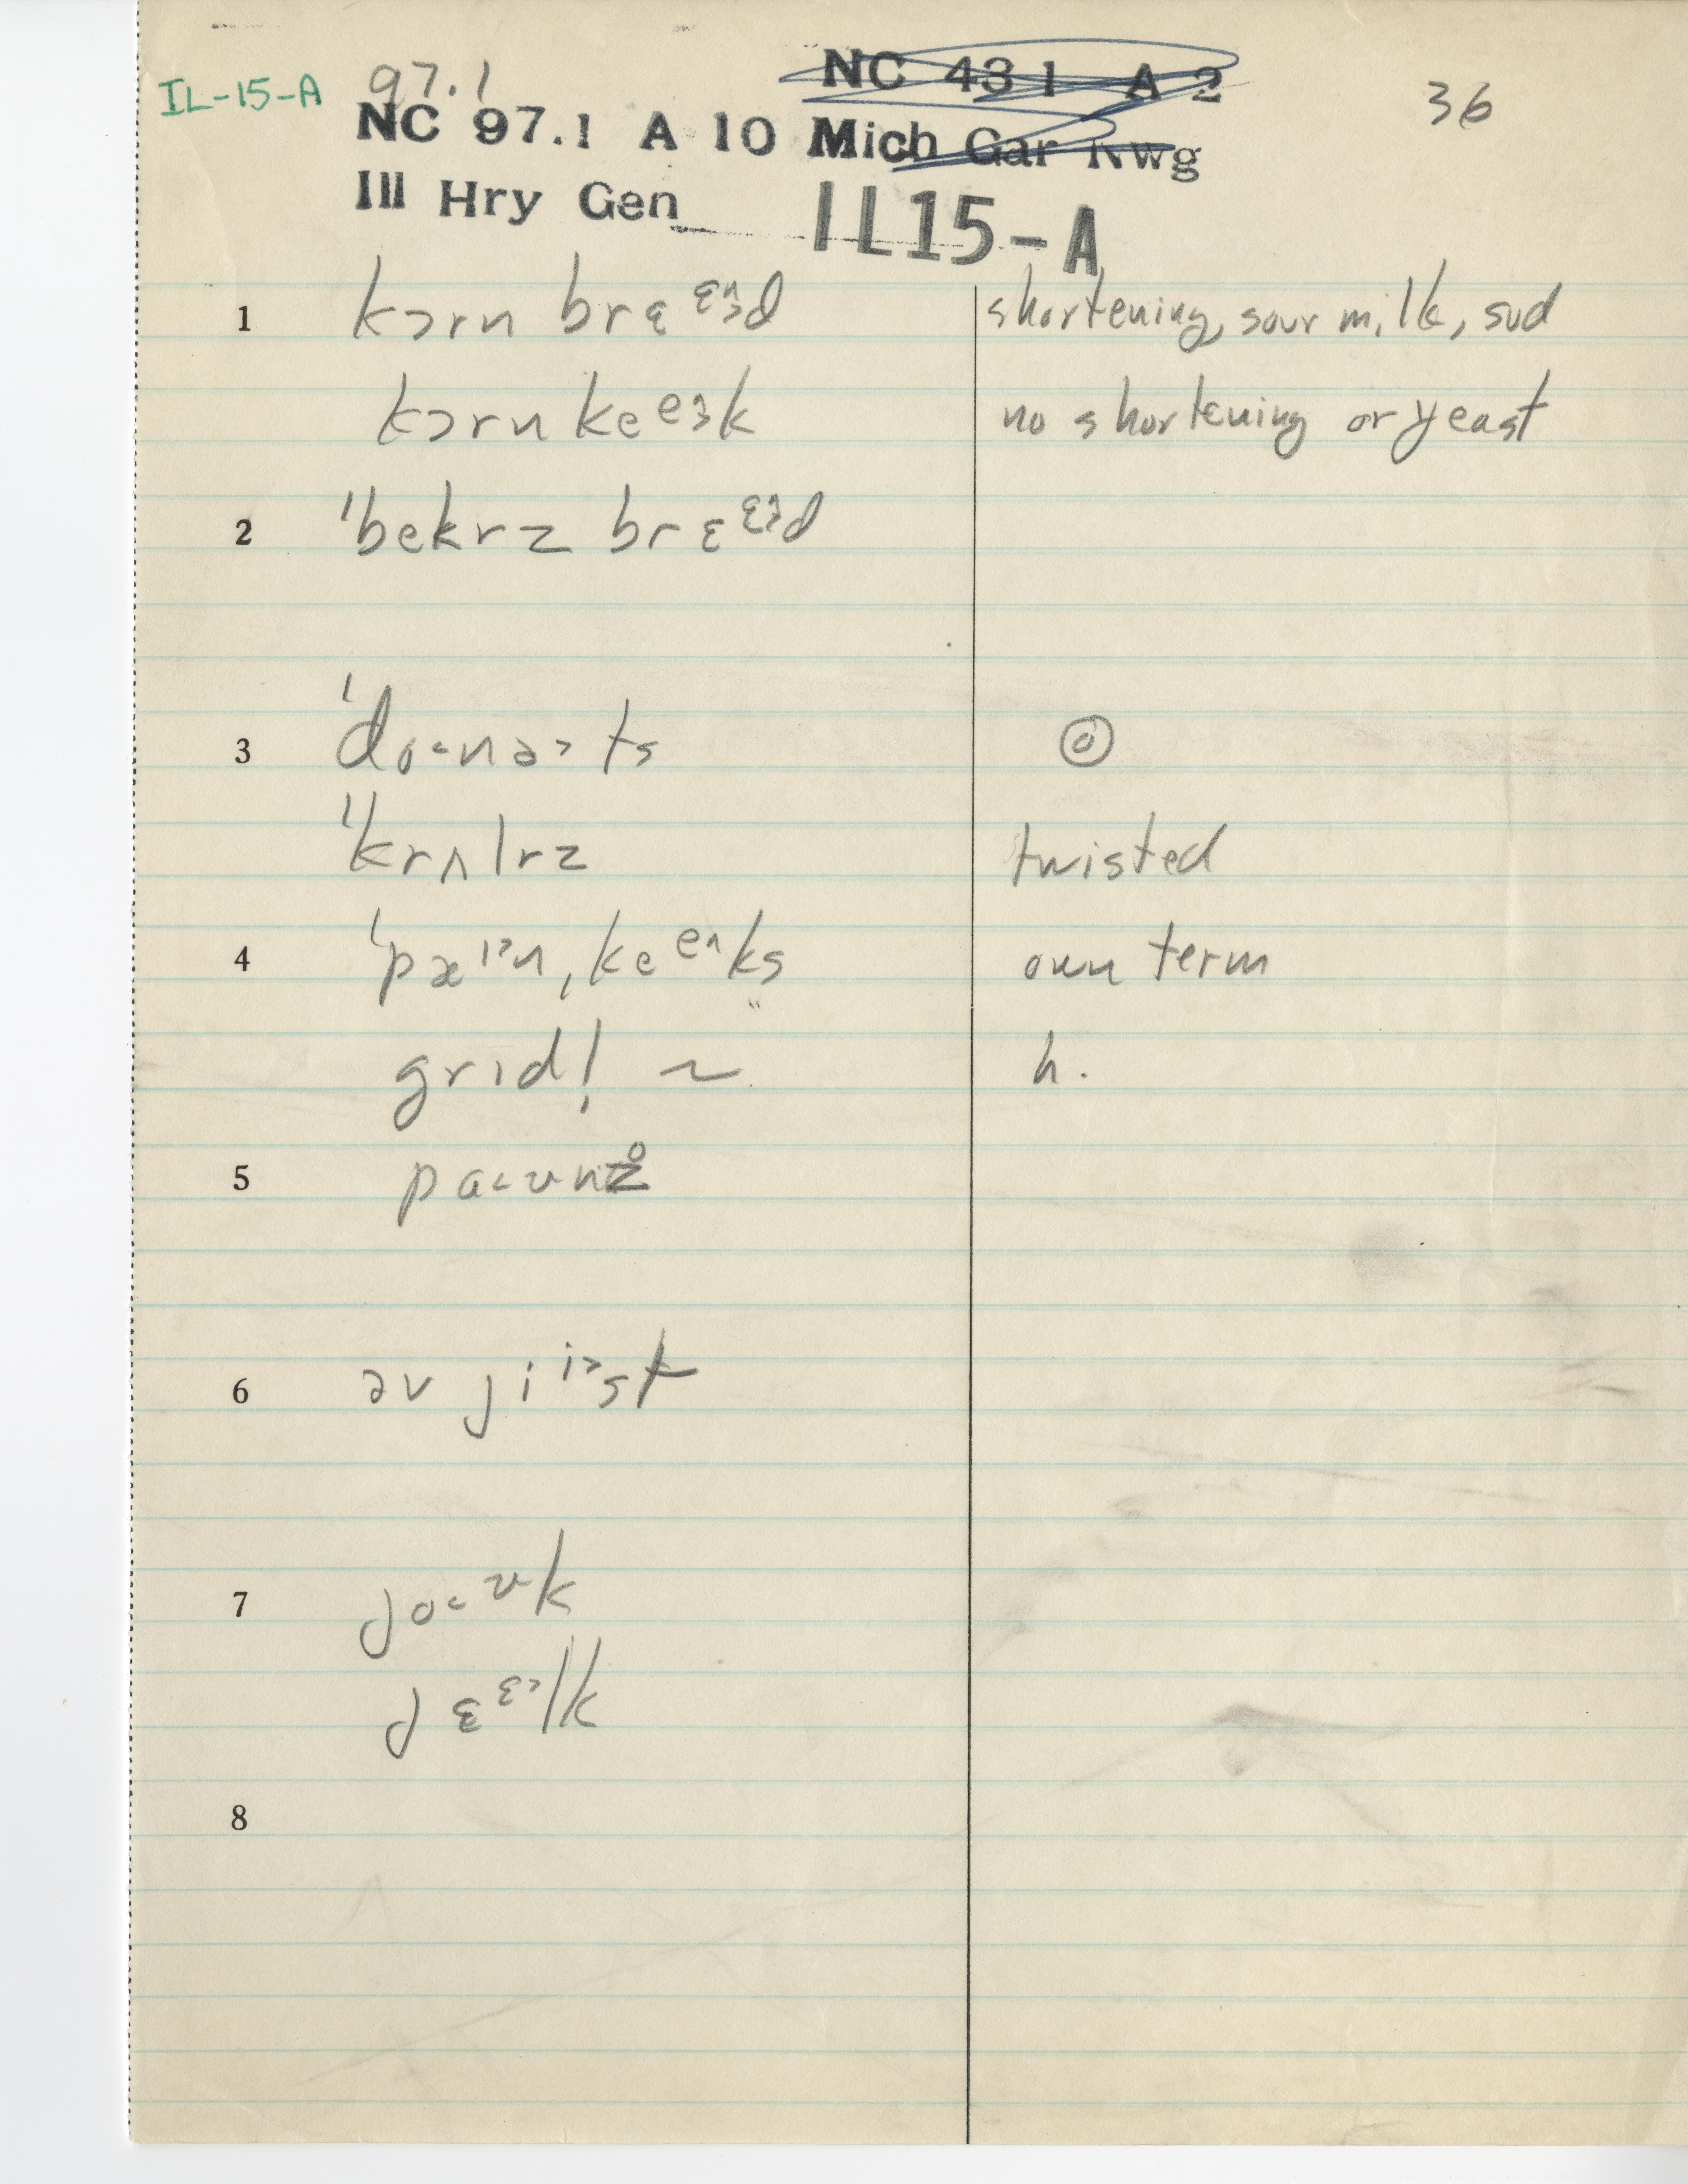 IL-15-A 97.1 NC 43 1 A 2 36
NC 97.1 A 10 Mich Gar Nwg
Ill Hry Gen IL15-A
1 kɔrn brɛᵋ^ɜd shortening, sour milk, sod
kɔrn keᵉɜk no shortening or yeast
2 ˈbekrz brɛᵋɜd
3 ˈdo˂nə˃ts
ˈkrʌlrz twisted
4 ˈpæⁱ˃n ˌkeᵉ^ks own term
grɪdl̩ ~ h.
5 pa˂ʊnz̥
6 əv jiⁱ˃st
7 jo˂ᶷk
jɛᵋ˃lk
8